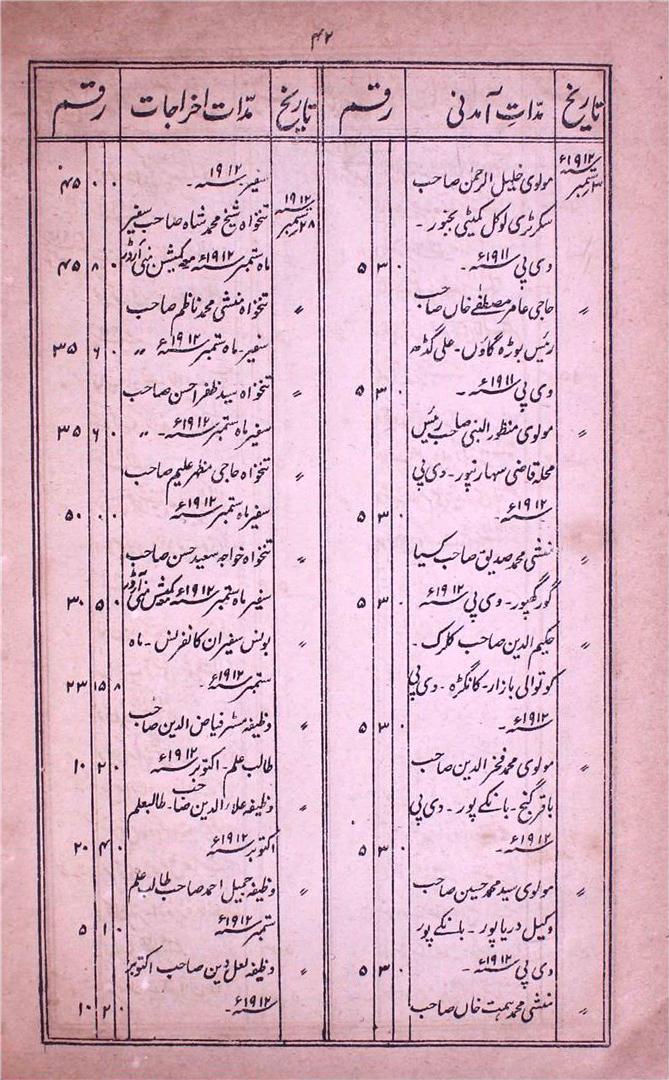 ۴۲
تاریخ
مدّاتِ آمدنی
رقم
۳ ستمبر ۱۹۱۲ء
مولوی خلیل الرحمٰن صاحب
سکرٹری لوکل کمیٹی بجنور ۔
وی پی ۱۹۱۱ء ۔ ۵ ۳ ۰
〃 حاجی عامر مصطفےٰ خاں صاحب
رئیس بوڑہ گاؤں ۔ علی گڈھ
وی پی ۱۹۱۱ء ۔ ۵ ۳ ۰
〃 مولوی منظور النبی صاحب رئیس
محلہ قاضی سہارنپور ۔ وی پی
۱۹۱۲ء ۔ ۵ ۳ ۰
〃 منشی محمد صدیق صاحب کسیا
گورکھپور ۔ وی پی ۱۹۱۲ء ۵ ۳ ۰
〃 حکیم الدین صاحب کلرک ۔
کوتوالی بازار ۔ کانگڑہ ۔ وی پی
۱۹۱۲ء ۔ ۵ ۳ ۰
〃 مولوی محمد فخر الدین صاحب
باقر گنج ۔ بانکے پور ۔ وی پی
۱۹۱۲ء ۔ ۵ ۳ ۰
〃 مولوی سید محمد حسین صاحب
وکیل دریا پور ۔ بانکے پور
وی پی ۱۹۱۲ء ۔ ۵ ۳ ۰
〃 منشی محمد ہمت خاں صاحب
تاریخ
مدّات اخراجات
رقم
سفیر ۱۹۱۲ء ۔ ۴۵ ۰ ۰
۲۸ ستمبر ۱۹۱۲ء تنخواہ شیخ محمد شاہ صاحب سفیر
ماہ ستمبر ۱۹۱۲ء معہ کمیشن منی آرڈر ۴۵ ۸ ۰
〃 تنخواہ منشی محمد ناظم صاحب
سفیر ۔ ماہ ستمبر ۱۹۱۲ء 〃 ۳۵ ۶ ۰
〃 تنخواہ سید ظفر احسن صاحب
سفیر ماہ ستمبر ۱۹۱۲ء ۔ 〃 ۳۵ ۶ ۰
〃 تنخواہ حاجی مظہر علیم صاحب
سفیر ماہ ستمبر ۱۹۱۲ء ۵۰ ۰ ۰
〃 تنخواہ خواجہ سعید حسن صاحب
سفیر ماہ ستمبر ۱۹۱۲ء معہ کمیشن منی آرڈر ۳۰ ۵ ۰
〃 بونس سفیران کانفرنس ۔ ماہ
ستمبر ۱۹۱۲ء ۔ ۲۳ ۱۵ ۸
〃 وظیفہ مسٹر فیاض الدین صاحب
طالب علم ۔ اکتوبر ۱۹۱۲ء ۱۰ ۲ ۰
〃 وظیفہ علاء الدین صاحب ۔ طالبعلم
اکتوبر ۱۹۱۲ء ۲۰ ۴ ۰
〃 وظیفہ جمیل احمد صاحب طالب علم
ستمبر ۱۹۱۲ء ۵ ۱ ۰
〃 وظیفہ لعل دین صاحب اکتوبر
۱۹۱۲ء ۔ ۱۰ ۲ ۰